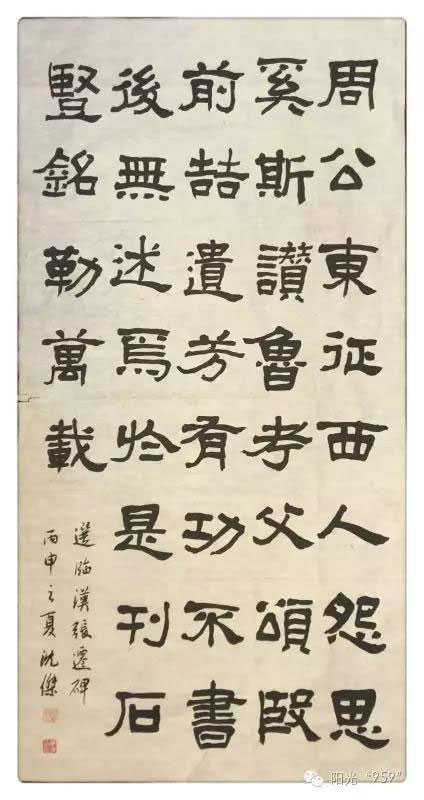 周公東征西人怨思
奚斯讚魯考父頌殷
前喆遺芳有功不書
後無述焉於是刊石
豎銘勒萬載
選臨漢張遷碑
丙申之夏沈傑
阳光“959”